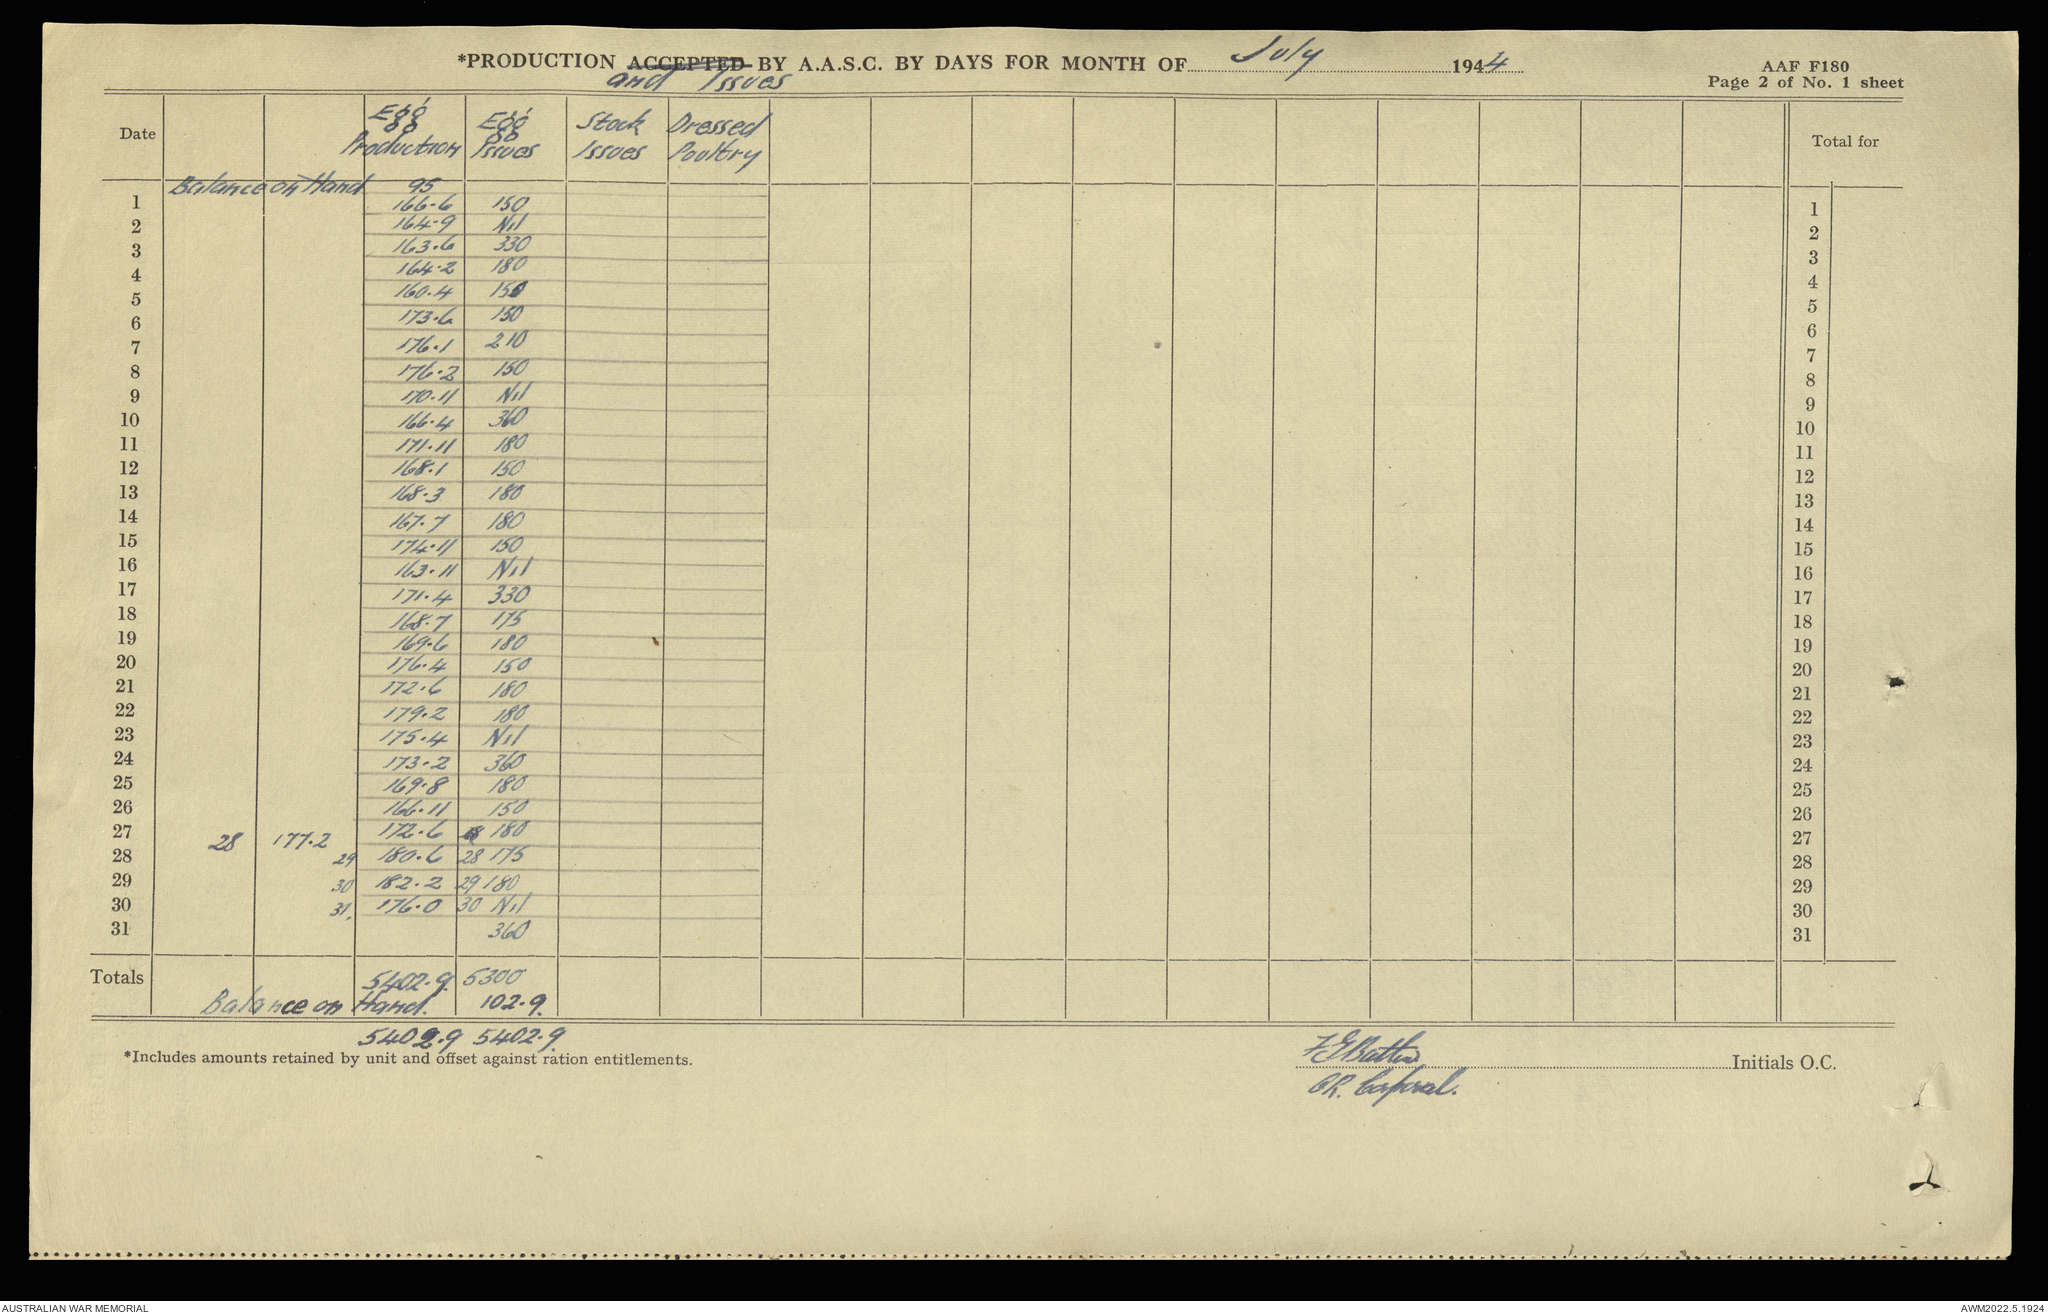 *PRODUCTION ACCEPTED BY A.A.S.C. BY DAYS FOR MONTH OF July 1944
and Issues
AAF F180
Page 2 of No. 1 sheet
Date Egg Production Egg Issues Stock Issues Dressed Poultry Total for
Balance on Hand 95
1 166.6 150 1
2 164.9 Nil 2
3 163.6 330 3
4 164.2 180 4
5 160.4 150 5
6 173.6 150 6
7 176.1 210 7
8 176.2 150 8
9 170.11 Nil 9
10 166.4 360 10
11 171.11 180 11
12 168.1 150 12
13 168.3 180 13
14 167.7 180 14
15 174.11 150 15
16 163.11 Nil 16
17 171.4 330 17
18 168.7 175 18
19 169.6 180 19
20 176.4 150 20
21 172.6 180 21
22 179.2 180 22
23 175.4 Nil 23
24 173.2 360 24
25 169.8 180 25
26 166.11 150 26
27 172.6 180 27
28 177.2
28 29 180.6 28 175 28
29 30 182.2 29 180 29
30 31. 176.0 30 Nil 30
31 360 31
Totals 5402.9 5300
Balance on Hand. 102.9.
5402.9 5402.9
*Includes amounts retained by unit and offset against ration entitlements.
Initials O.C.
Corporal.
AUSTRALIAN WAR MEMORIAL
AWM2022.5.1924